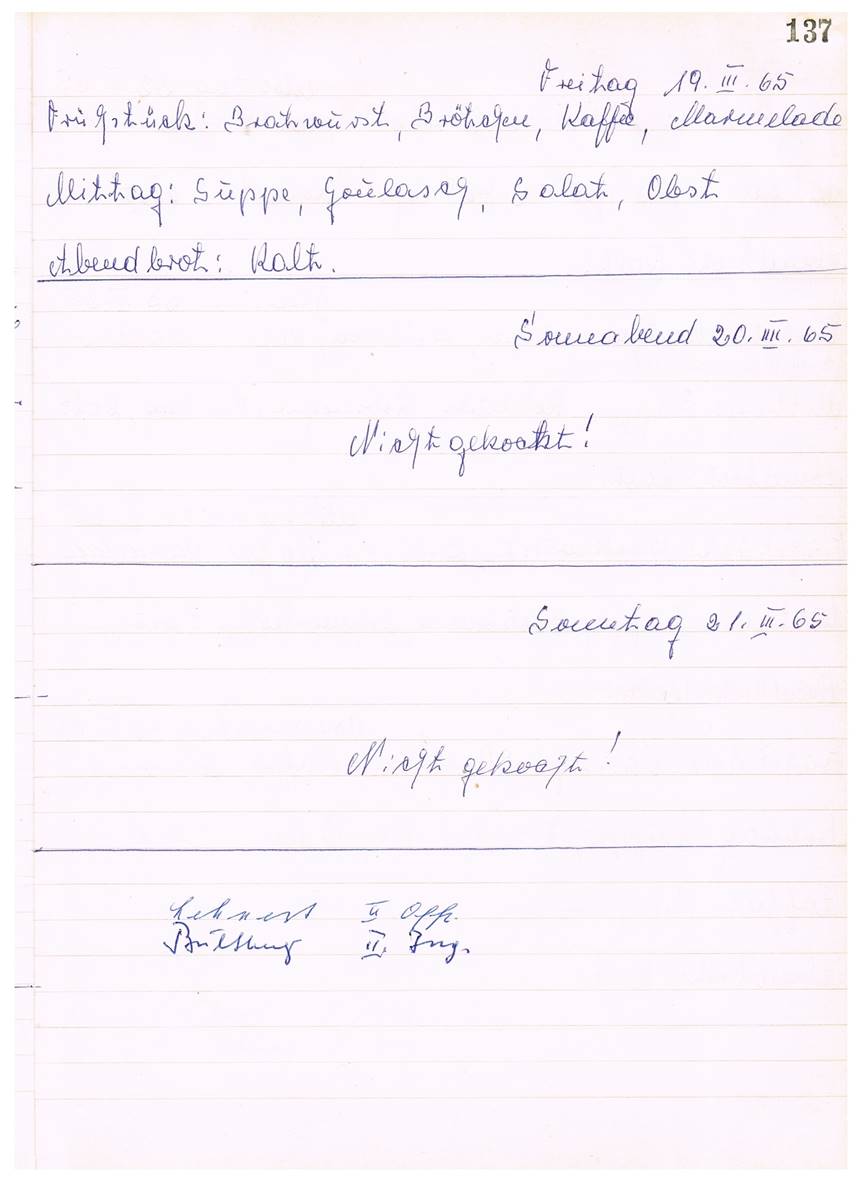 137
Freitag 19. III. 65
Frühstück: Bratwurst, Brötchen, Kaffe, Marmelade
Mittag: Suppe, Goulasch, Salat, Obst
Abendbrot: Kalt.
Sonnabend 20. III. 65
Nicht gekocht!
Sonntag 21. III. 65
Nicht gekocht!
Lehnert II Off.
II. Ing.